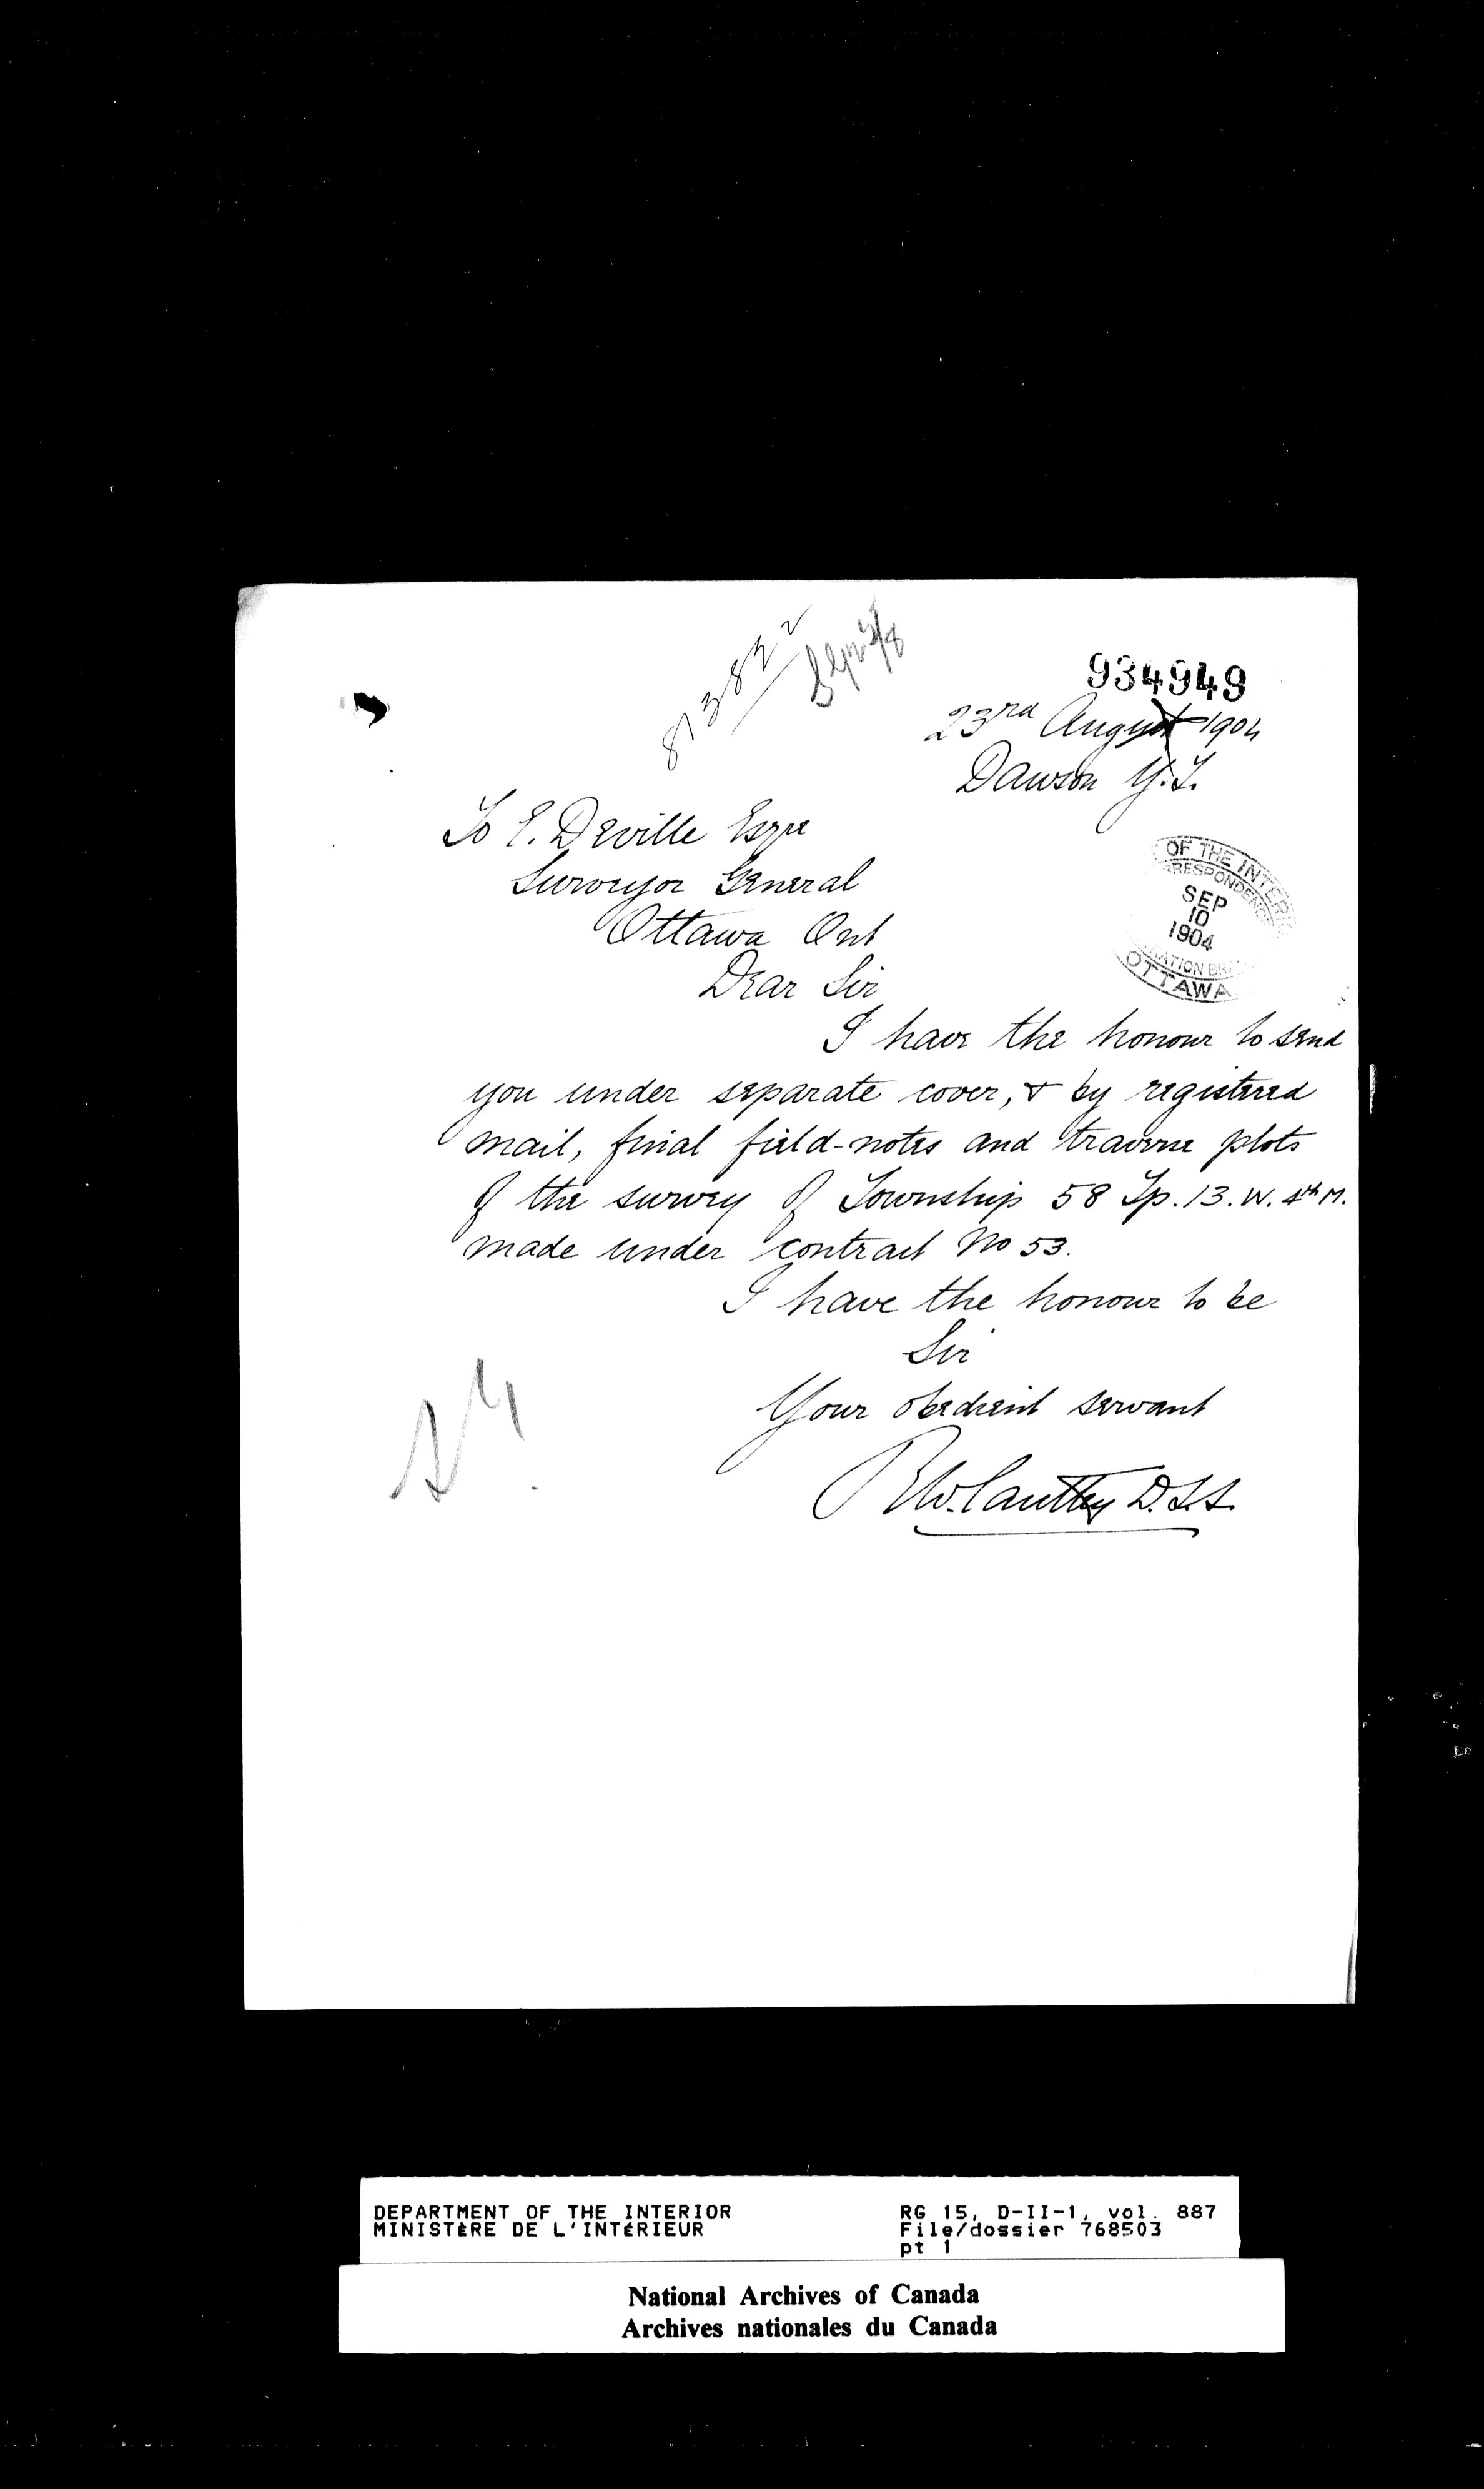 81382
934949
23rd August 1904
Dawson Y.T.
To E. Deville Esqre
Surveyor General
Ottawa Ont
OF THE INTERI
RRESPONDENCE
SEP
10
1904
OTTAWA
Dear Sir
I have the honour to send
you under separate cover, & by registered
mail, final field-notes and traverse plots
of the survey of Township 58 Tp. 13. W. 4th M.
made under contract No 53.
I have the honour to be
Sir
Your obedient servant
R.W. Cautley D.L.S.
DEPARTMENT OF THE INTERIOR
MINISTÈRE DE L'INTÉRIEUR
RG 15, D-II-1, vol. 887
File/dossier 768503
pt 1
National Archives of Canada
Archives nationales du Canada